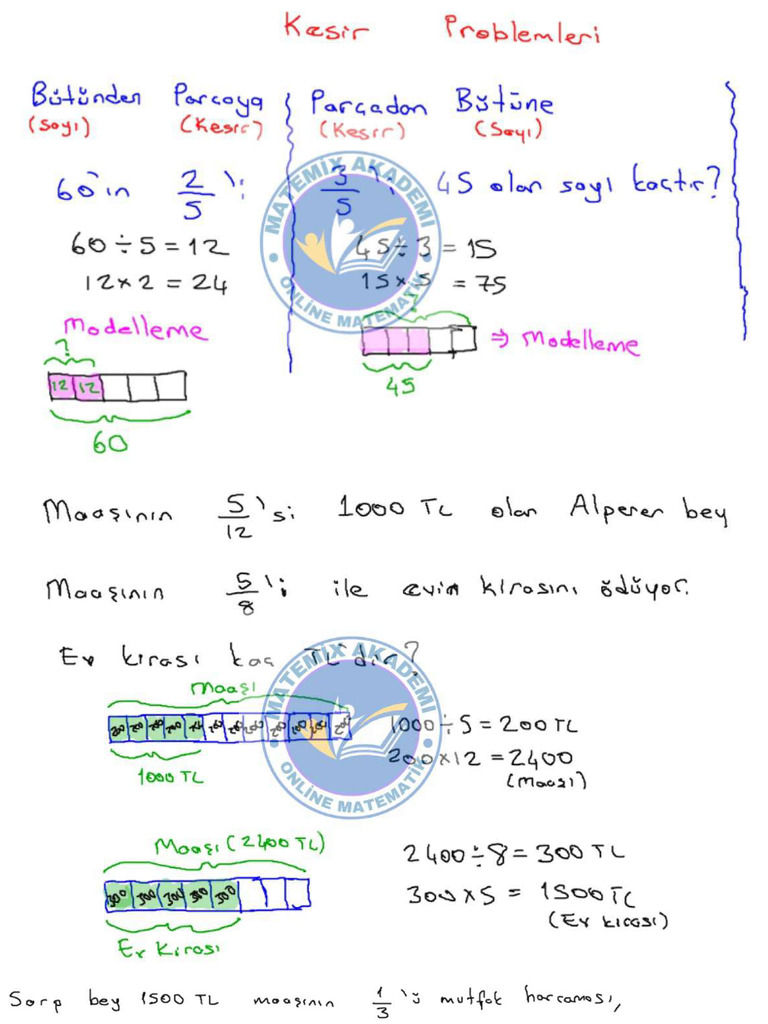 Kesir Problemleri
Bütünden Parçaya
(Sayı) (Kesir)
60'ın 2/5'i
60 ÷ 5 = 12
12 × 2 = 24
Modelleme
?
12 12
60
Parçadan Bütüne
(Kesir) (Sayı)
3/5'i 45 olan sayı kaçtır?
45 ÷ 3 = 15
15 × 5 = 75
?
⇒ Modelleme
45
MATEMİX AKADEMİ
ONLİNE MATEMATİK
Maaşının 5/12'si 1000 TL olan Alperen bey
Maaşının 5/8'i ile evin kirasını ödüyor.
Ev kirası kaç TL'dir?
Maaşı
200 200 200 200 200 200 200 200 200 200 200
1000 TL
1000 ÷ 5 = 200 TL
200 × 12 = 2400
(Maaşı)
MATEMİX AKADEMİ
ONLİNE MATEMATİK
Maaşı (2400 TL)
300 300 300 300 300
Ev Kirası
2400 ÷ 8 = 300 TL
300 × 5 = 1500 TL
(Ev kirası)
Sarp bey 1500 TL maaşının 1/3'ü mutfak harcaması,